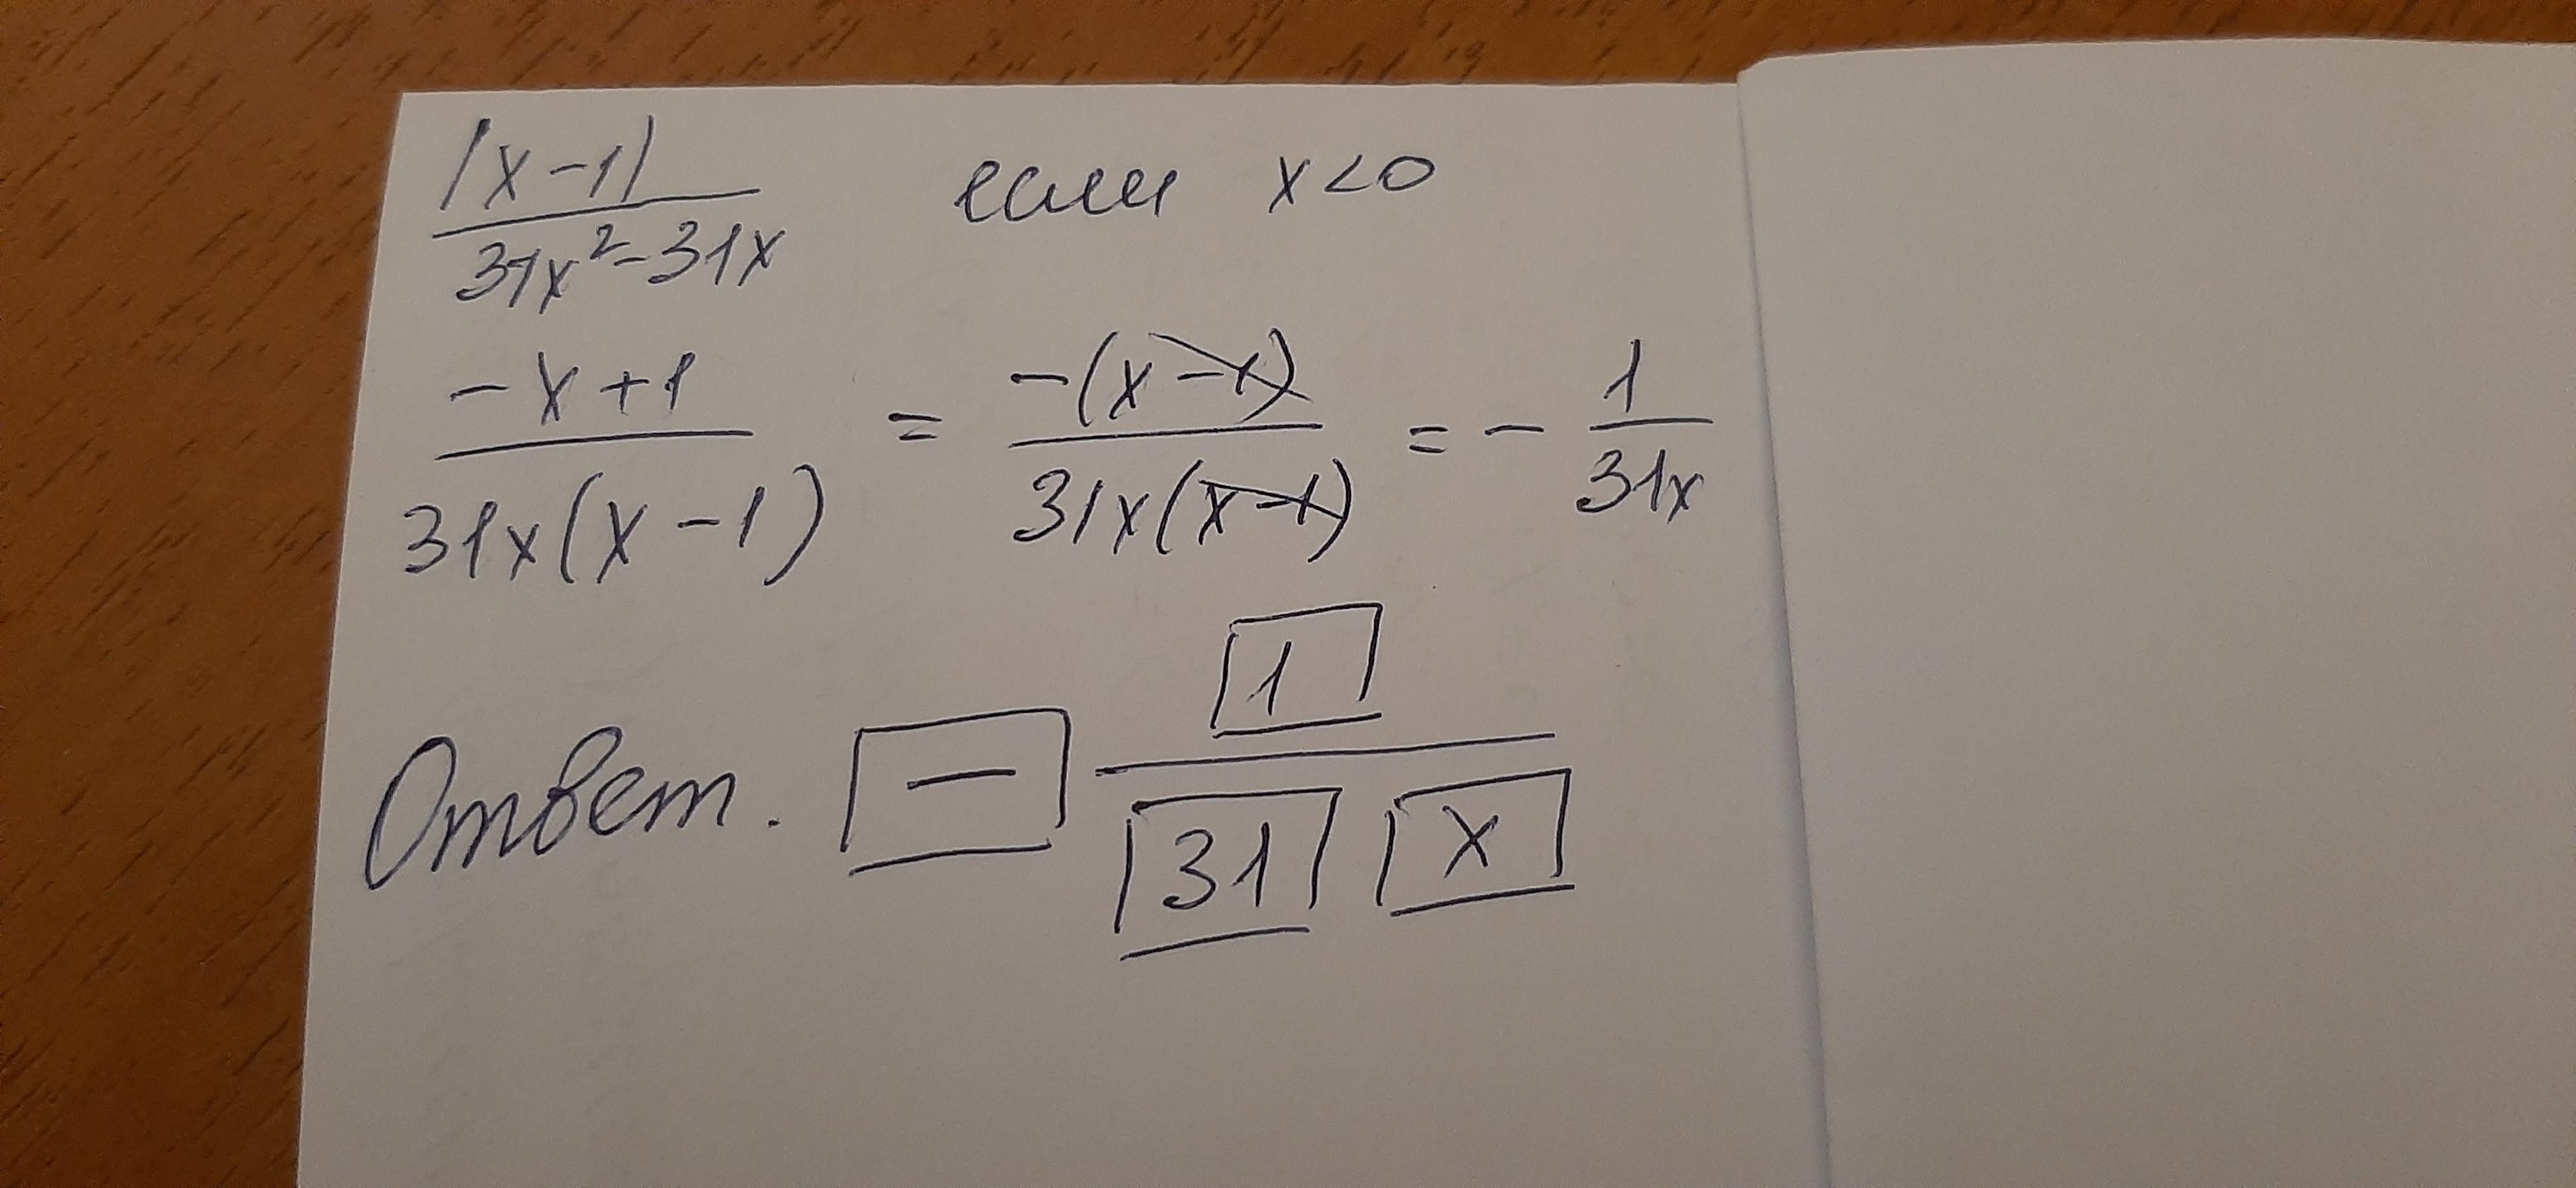 |x-1| / 31x²-31x если x<0
-x+1 / 31x(x-1) = -(x-1) / 31x(x-1) = - 1 / 31x
Ответ. - 1 / 31 x